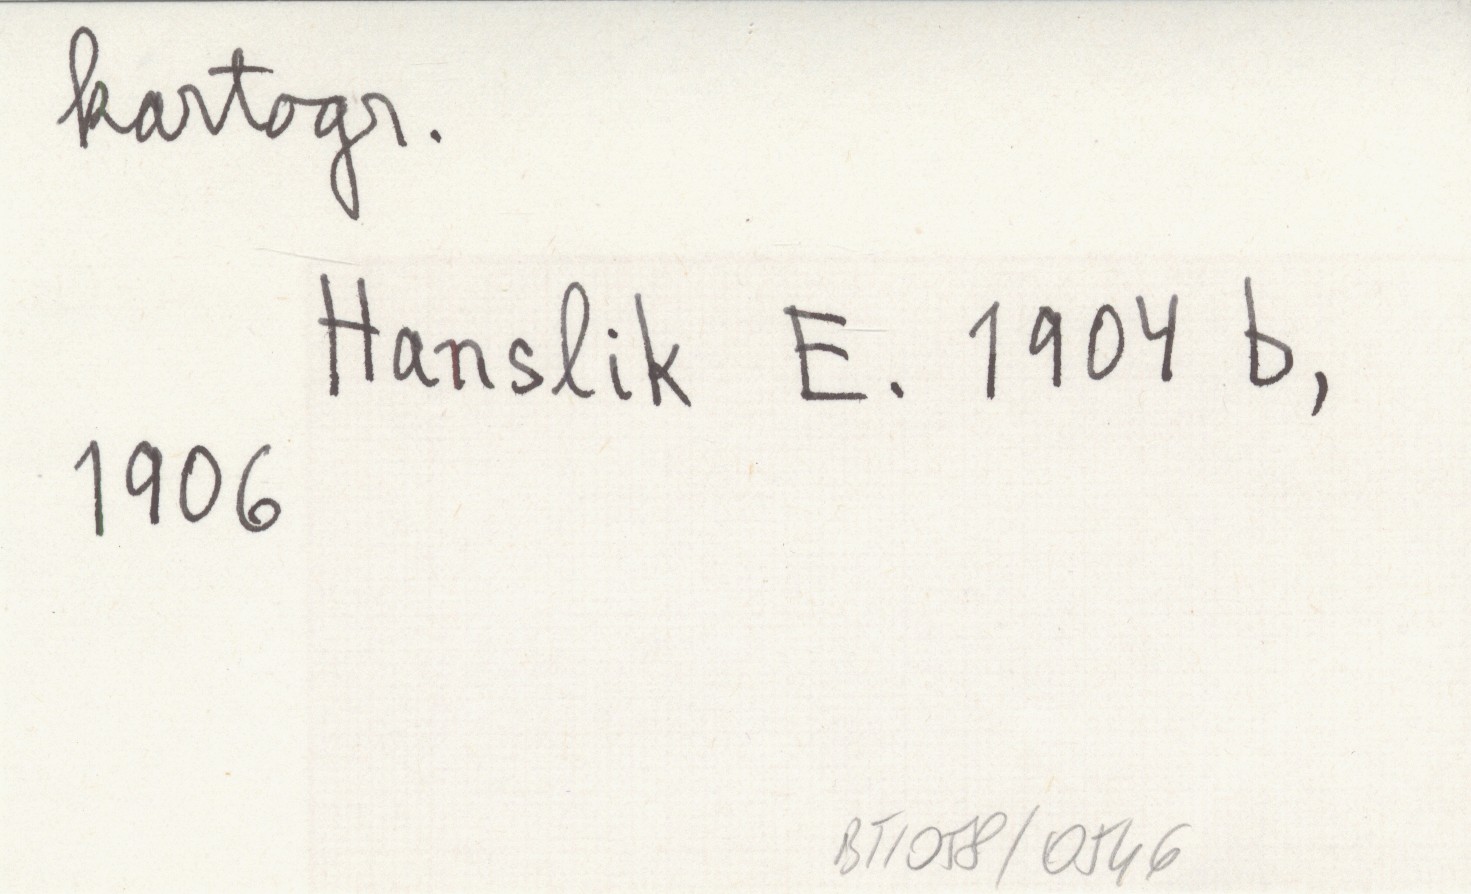 kartogr.
Hanslik E. 1904 b,
1906
BT/058/0546